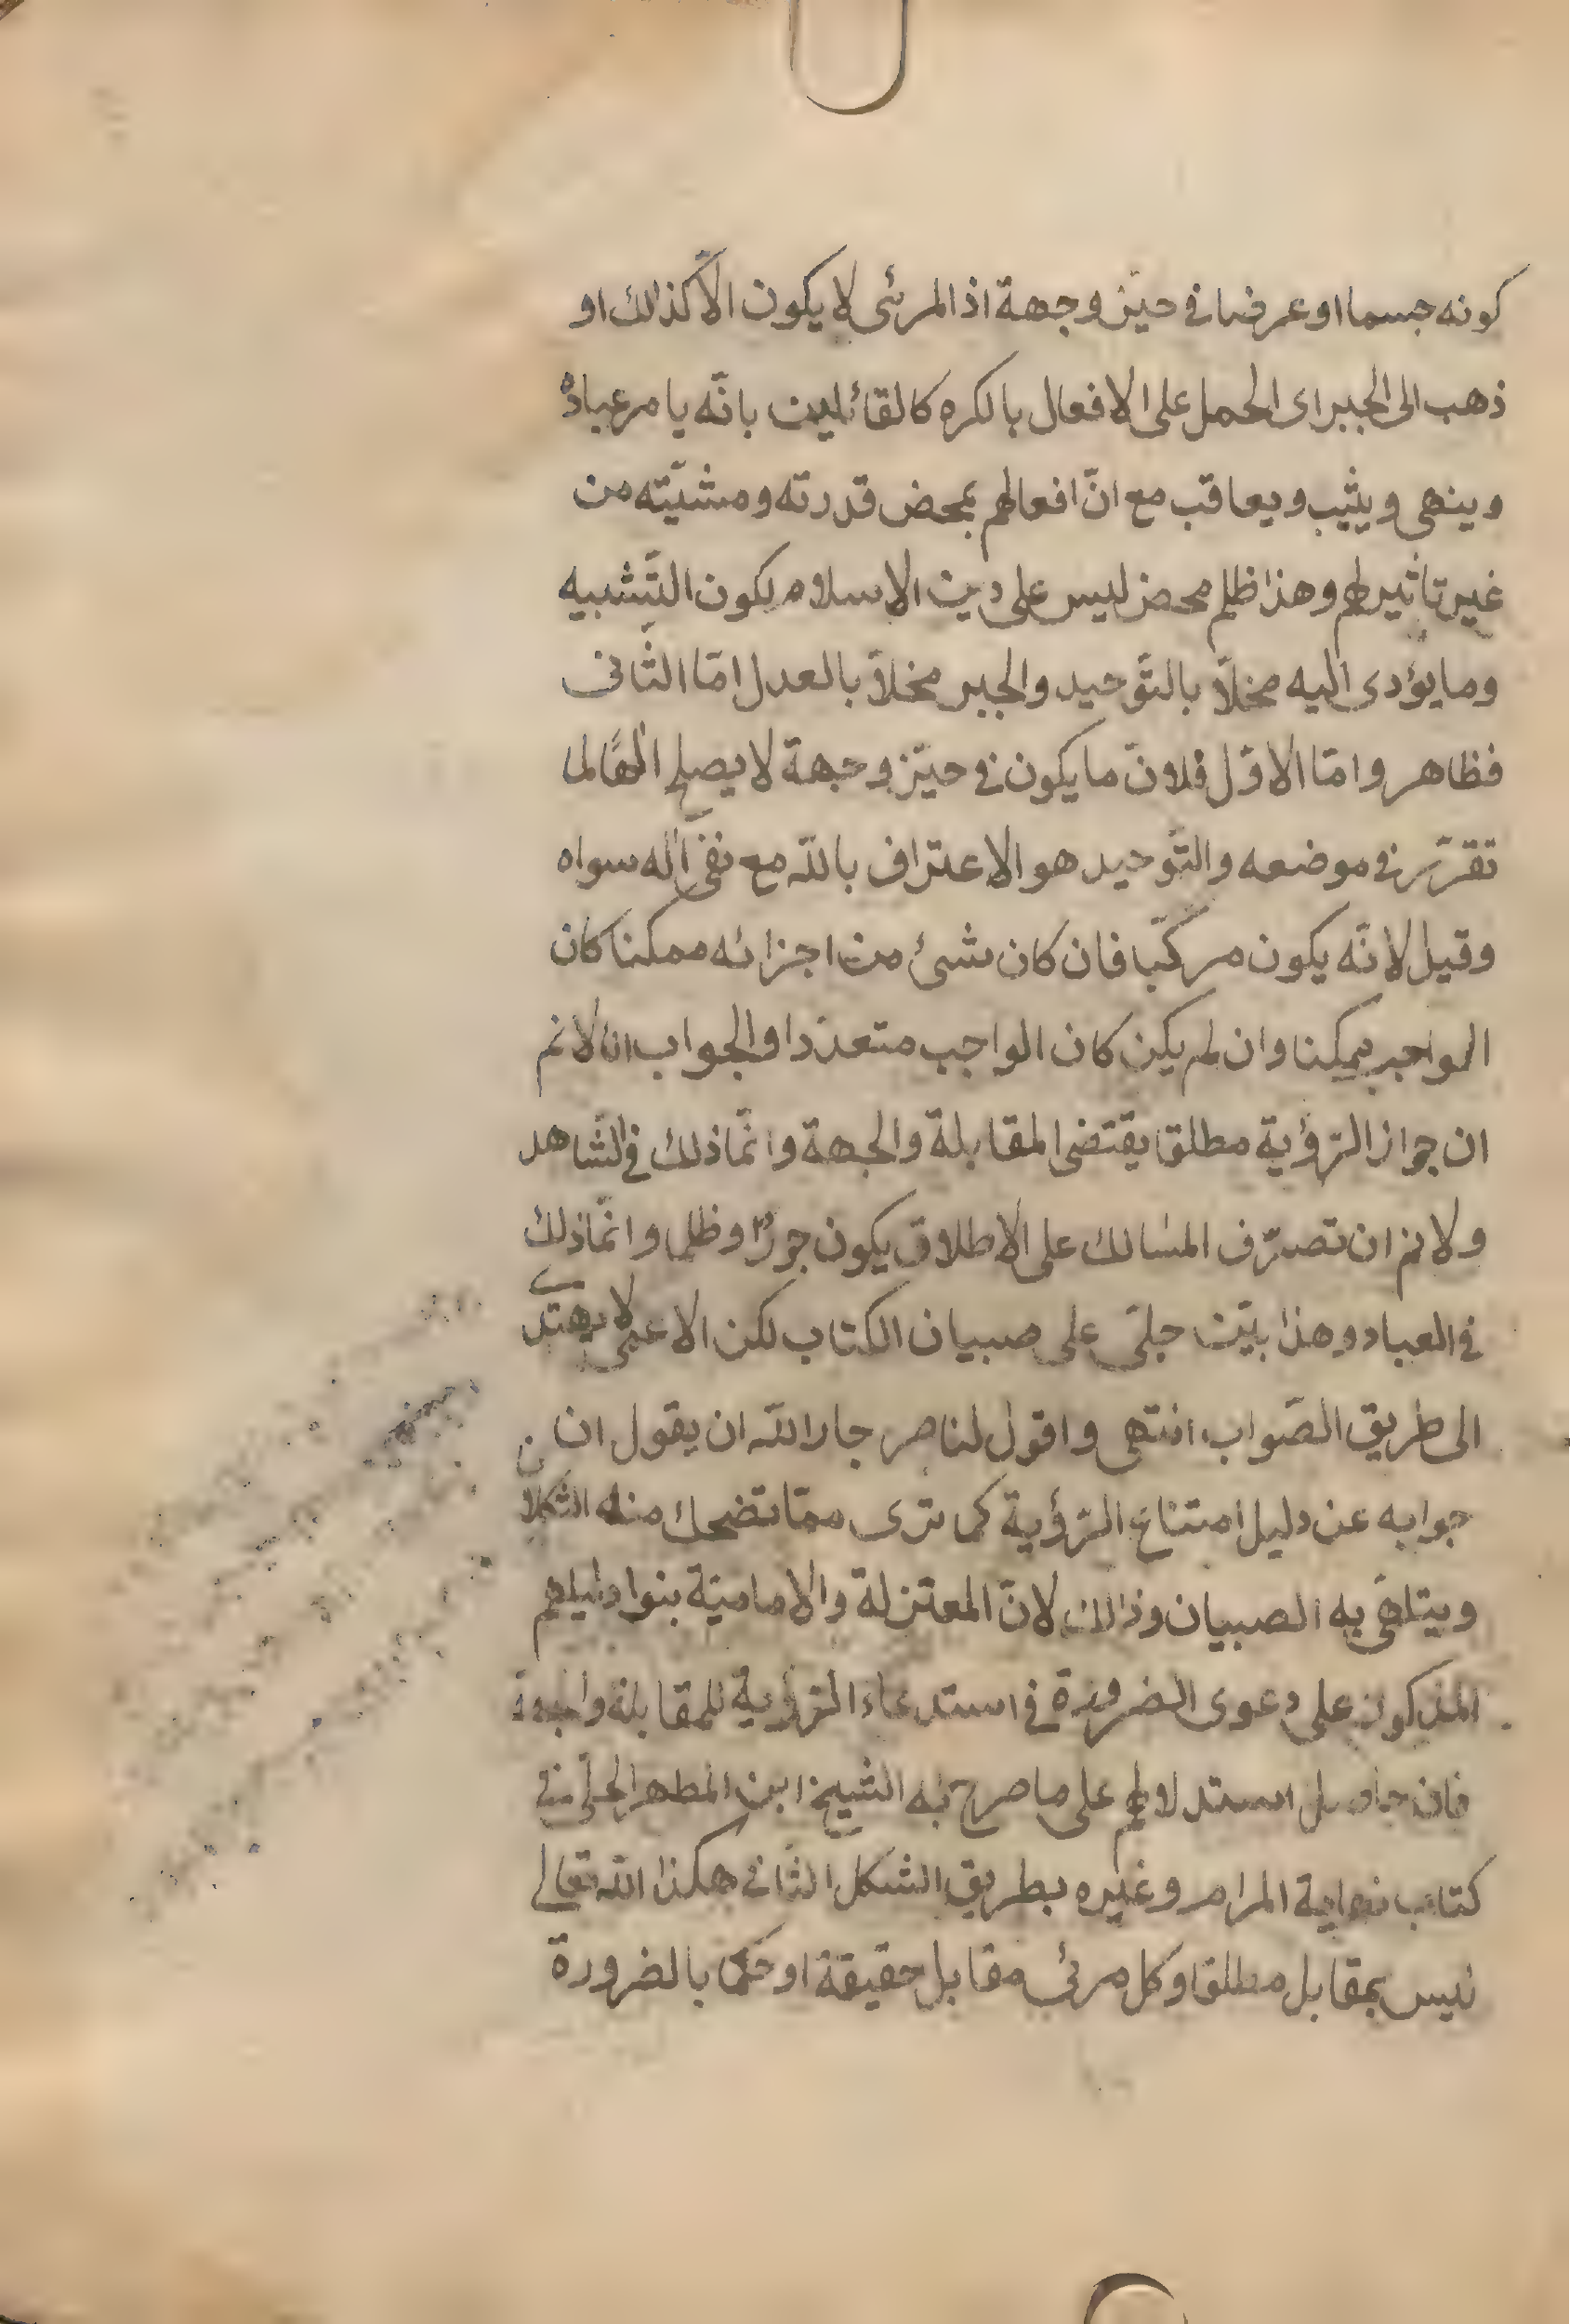 كونه جسما او عرضا في حيّز وجهة اذ المرئى لا يكون الّا كذلك او
ذهب الى الجبر اى الحمل على الافعال بالكره كالقائلين بانّه يامر عباده
وينهى ويثيب ويعاقب مع انّ افعالهم بمحض قدرته ومشيّته من
غير تاثير لهم وهذا ظلم محض ليس على دين الاسلام لكون التّشبيه
وما يؤدى اليه مخلّا بالتّوحيد والجبر مخلاّ بالعدل امّا الثّانى
فظاهر وامّا الاوّل فلانّ ما يكون في حيّز وجهة لا يصلح الٰهًا لما
تقرّر في موضعه والتّوحيد هو الاعتراف باللّه مع نفى آله سواه
وقيل لانّه يكون مركّبا فان كان شئ من اجزائه ممكنا كان
الواجب ممكنا وان لم يكن كان الواجب متعدّدا والجواب انا لانم
ان جواز الرّؤية مطلقا يقتضى المقابلة والجهة وانّما ذلك في الشّاهد
ولانم ان تصرّف المالك على الاطلاق يكون جورًا وظلما وانّما ذلك
في العباد وهذا بيّن جلىّ على صبيان الكتاب لكن الاعمى لا يهتدى
الى طريق الصّواب انتهى واقول لناصر جار اللّه ان يقول ان
جوابه عن دليل امتناع الرّؤية كما ترى ممّا تضحك منه الثكلان
ويتلهّى به الصبيان وذلك لانّ المعتزلة والاماميّة بنوا دليلهم
المذكور على دعوى الضرورة في استدعاء الرّؤية للمقابلة والجهة
فان حاصل استدلالهم على ما صرح به الشيخ ابن المطهر الحلّى في
كتاب نهاية المرام وغيره بطريق الشكل الثّانى هكذا اللّه تعالى
ليس بمقابل مطلقا وكل مرئى مقابل حقيقة او حكما بالضرورة